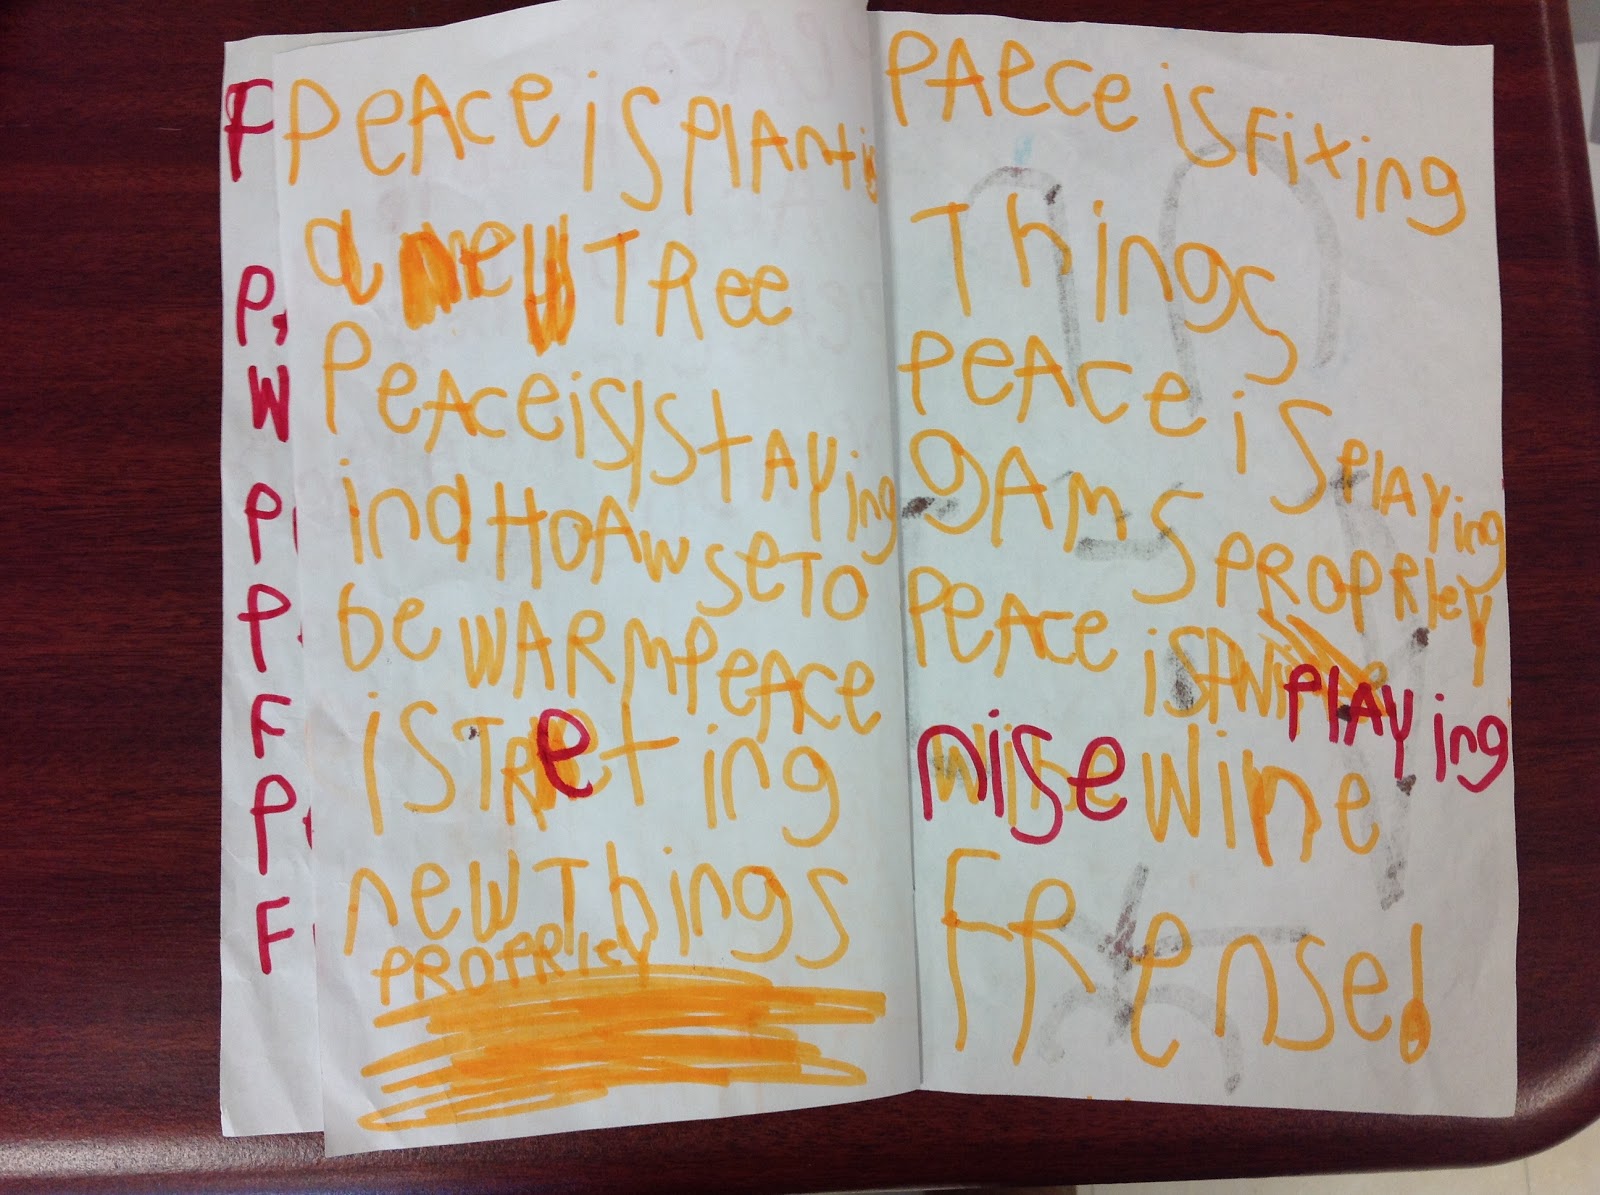 F
P
W
P
P
F
P
F
PeAce iS PlAnti
a new TRee
PeAce is StAying
in a HOAwse TO
be WARm PeACe
iS TReting
new Things
PROPRley
PAece is Fixing
Things
PeAce is PlAying
gAmS PROPRley
PeAce is PlAying
nise Wine
FRense!